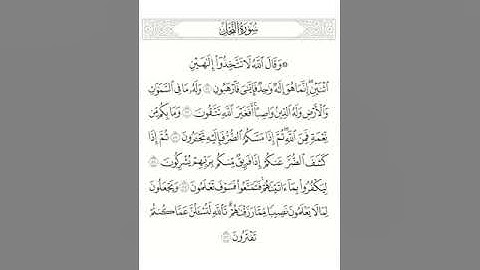 سُورَةُ النَّحْلِ
۞ وَقَالَ ٱللَّهُ لَا تَتَّخِذُوٓا۟ إِلَٰهَيْنِ
ٱثْنَيْنِ ۖ إِنَّمَا هُوَ إِلَٰهٌ وَٰحِدٌ ۖ فَإِيَّٰىَ فَٱرْهَبُونِ ۝٥١ وَلَهُۥ مَا فِى ٱلسَّمَٰوَٰتِ
وَٱلْأَرْضِ وَلَهُ ٱلدِّينُ وَاصِبًا ۚ أَفَغَيْرَ ٱللَّهِ تَتَّقُونَ ۝٥٢ وَمَا بِكُم مِّن
نِّعْمَةٍ فَمِنَ ٱللَّهِ ۖ ثُمَّ إِذَا مَسَّكُمُ ٱلضُّرُّ فَإِلَيْهِ تَجْـَٔرُونَ ۝٥٣ ثُمَّ إِذَا
كَشَفَ ٱلضُّرَّ عَنكُمْ إِذَا فَرِيقٌ مِّنكُم بِرَبِّهِمْ يُشْرِكُونَ ۝٥٤
لِيَكْفُرُوا۟ بِمَآ ءَاتَيْنَٰهُمْ ۚ فَتَمَتَّعُوا۟ ۖ فَسَوْفَ تَعْلَمُونَ ۝٥٥ وَيَجْعَلُونَ
لِمَا لَا يَعْلَمُونَ نَصِيبًا مِّمَّا رَزَقْنَٰهُمْ ۗ تَٱللَّهِ لَتُسْـَٔلُنَّ عَمَّا كُنتُمْ
تَفْتَرُونَ ۝٥٦